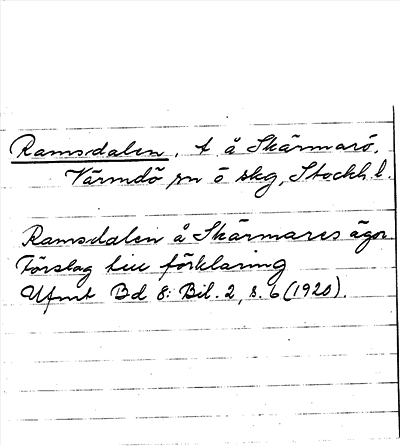 Ramsdalen, t å Skärmarö,
Värmdö sn ö skg, Stockh. l.
Ramsdalen å Skärmares ägor
Förslag till förklaring
Ufmt Bd 8: Bil. 2, s. 6 (1920).